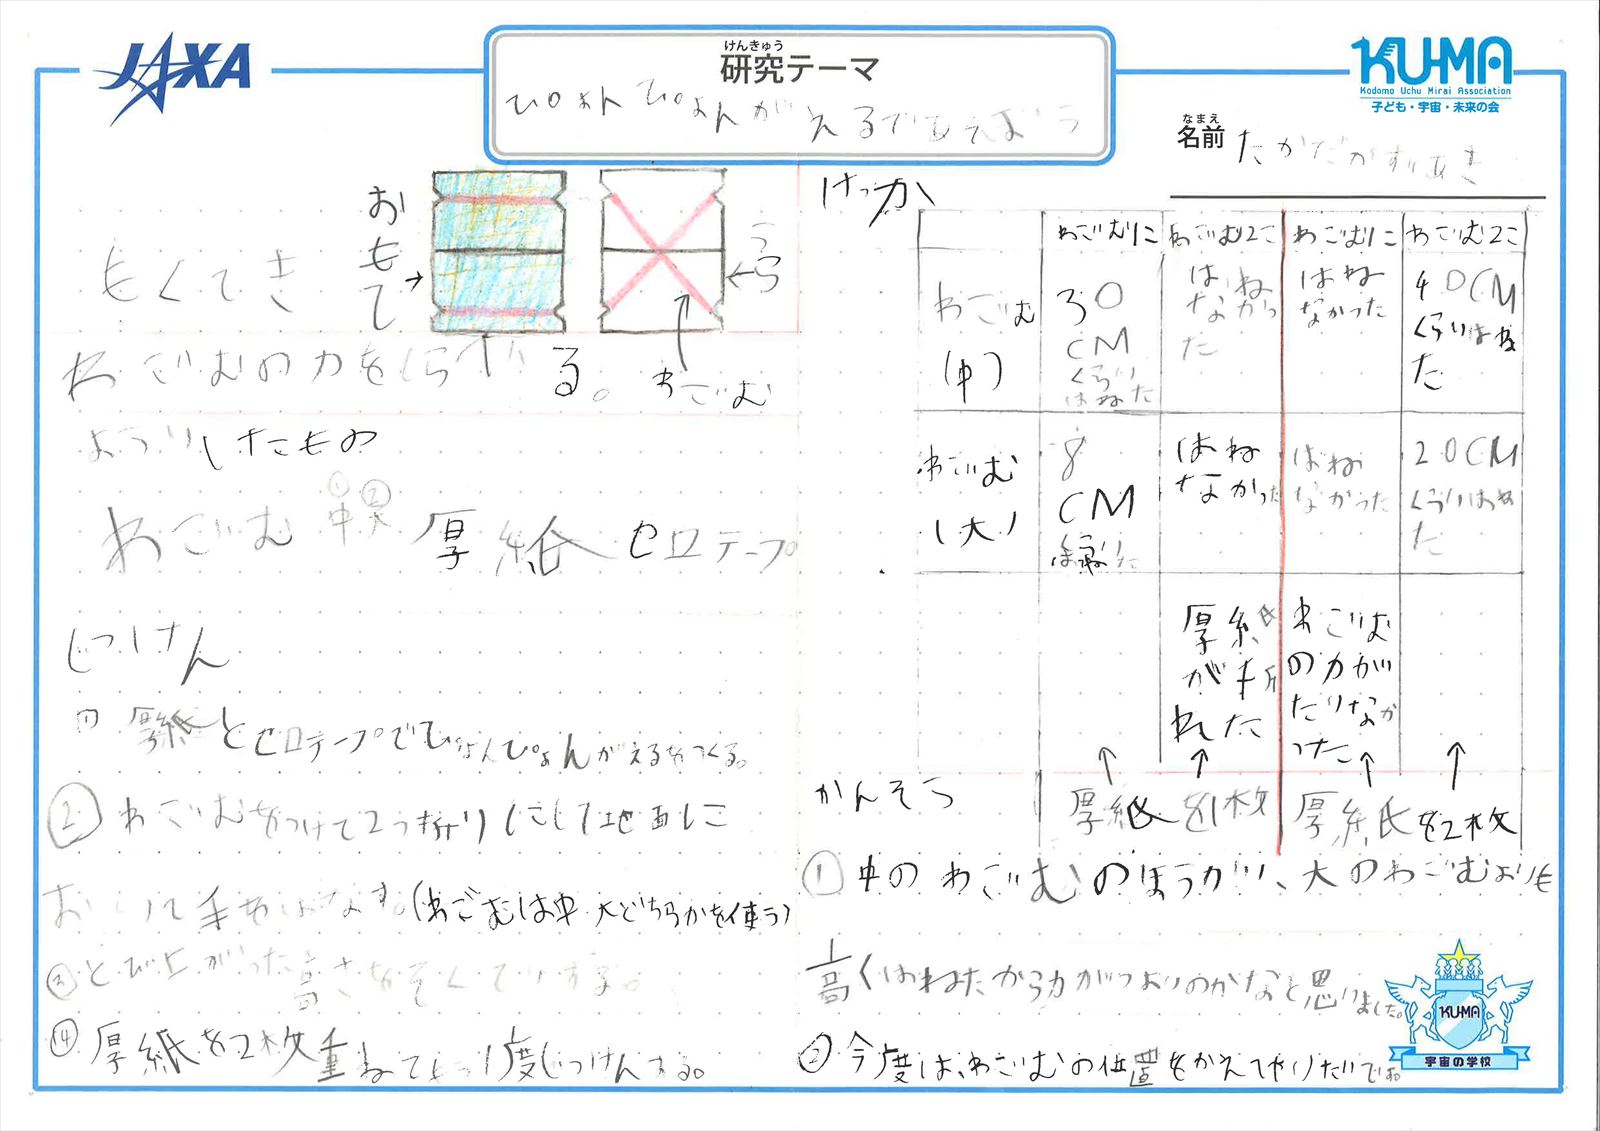 JAXA
けんきゅう
研究テーマ
ぴょんぴょんがえるであそぼう
KU-MA
Kodomo Uchu Mirai Association
子ども・宇宙・未来の会
なまえ
名前
もくてき
おもて
うら
わごむ
わごむの力をしらべる。
よういしたもの
① ②
わごむ 中 大 厚紙 セロテープ
じっけん
① 厚紙とセロテープでぴょんぴょんがえるをつくる。
② わごむをつけて2つ折りにして地面に
おいて手をはなす。(わごむは中、大どちらかを使う)
③ とび上がった高さをそくていする。
④ 厚紙を2枚重ねてもう1度じっけんする。
けっか
わごむ1こ わごむ2こ わごむ1こ わごむ2こ
わごむ(中) 30CMくらいはねた はねなかった はねなかった 40CMくらいはねた
わごむ(大) 8CM はねなかった はねなかった 20CMくらいはねた
厚紙が折れた わごむの力がたりなかった
厚紙を1枚 厚紙を2枚
かんそう
① 中のわごむのほうが、大のわごむよりも
高くはねたから力がつよいのかなと思いました。
② 今度は、わごむの位置をかえてやりたいです。
KU-MA
宇宙の学校